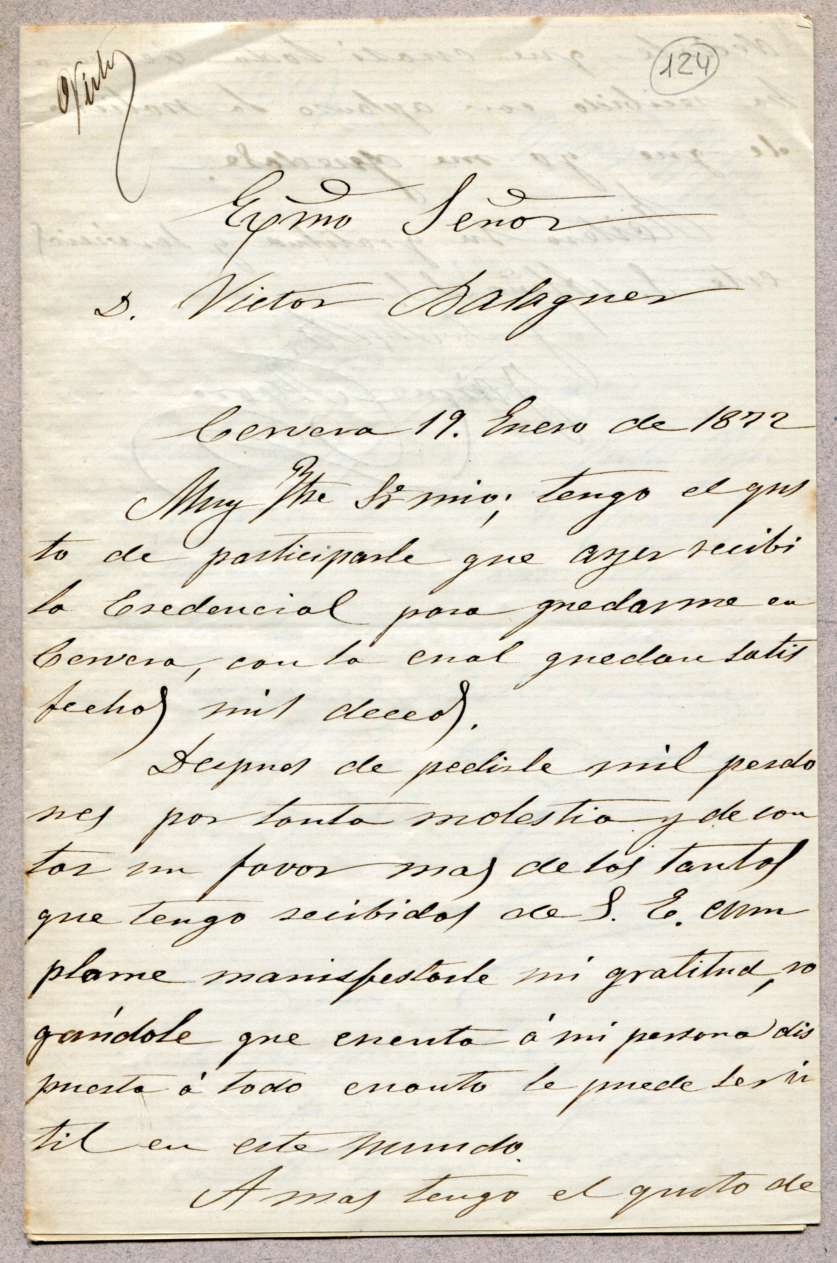 124
Exmo Señor
D. Victor Balaguer
Cervera 19. Enero de 1872
Muy Iltre Sr mio; tengo el gus
to de participarle que ayer recibi
la Credencial para quedarme en
Cervera, con la cual quedan satis
fechos mis deceos.
Despues de pedirle mil perdo
nes por tanta molestia y de con
tar un favor mas de los tantos
que tengo recibidos de S. E. cum
plame manisfestarle mi gratitud, ro
gándole que cuenta á mi persona dis
puesta á todo cuanto le puede ser ú
til en este mundo.
A mas tengo el gusto de